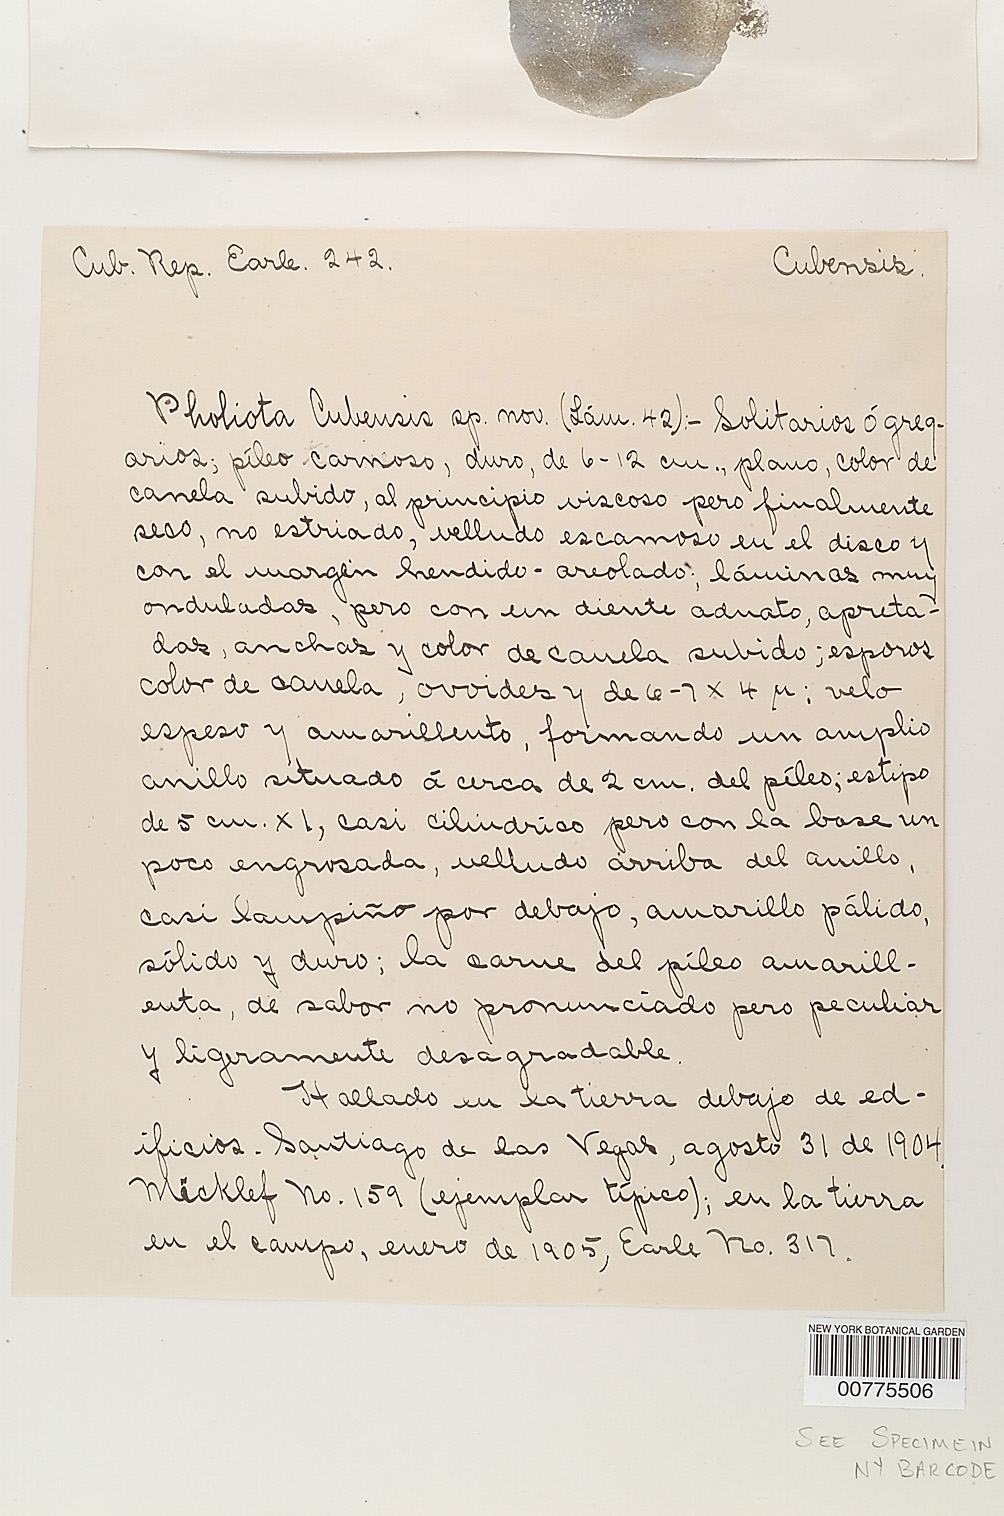 Cub. Rep. Earle. 242. Cubensis.
Pholiota Cubensis sp. nov. (Lám. 42):- Solitarios ó greg-
arios; píleo carnoso, duro, de 6-12 cm., plano, color de
canela subido, al principio viscoso pero finalmente
seco, no estriado, velludo escamoso en el disco y
con el margen hendido-areolado; láminas muy
onduladas, pero con un diente adnato, apreta-
das, anchas y color de canela subido; esporos
color de canela, ovoides y de 6-7 x 4 µ; velo
espeso y amarillento, formando un amplio
anillo situado á cerca de 2 cm. del píleo; estipo
de 5 cm. x 1, casi cilíndrico pero con la base un
poco engrosada, velludo arriba del anillo,
casi lampiño por debajo, amarillo pálido,
sólido y duro; la carne del píleo amarill-
enta, de sabor no pronunciado pero peculiar
y ligeramente desagradable.
Hallado en la tierra debajo de ed-
ificios. Santiago de las Vegas, agosto 31 de 1904.
Micklef No. 159 (ejemplar típico); en la tierra
en el campo, enero de 1905, Earle No. 317.
NEW YORK BOTANICAL GARDEN
00775506
SEE SPECIMEIN
NY BARCODE